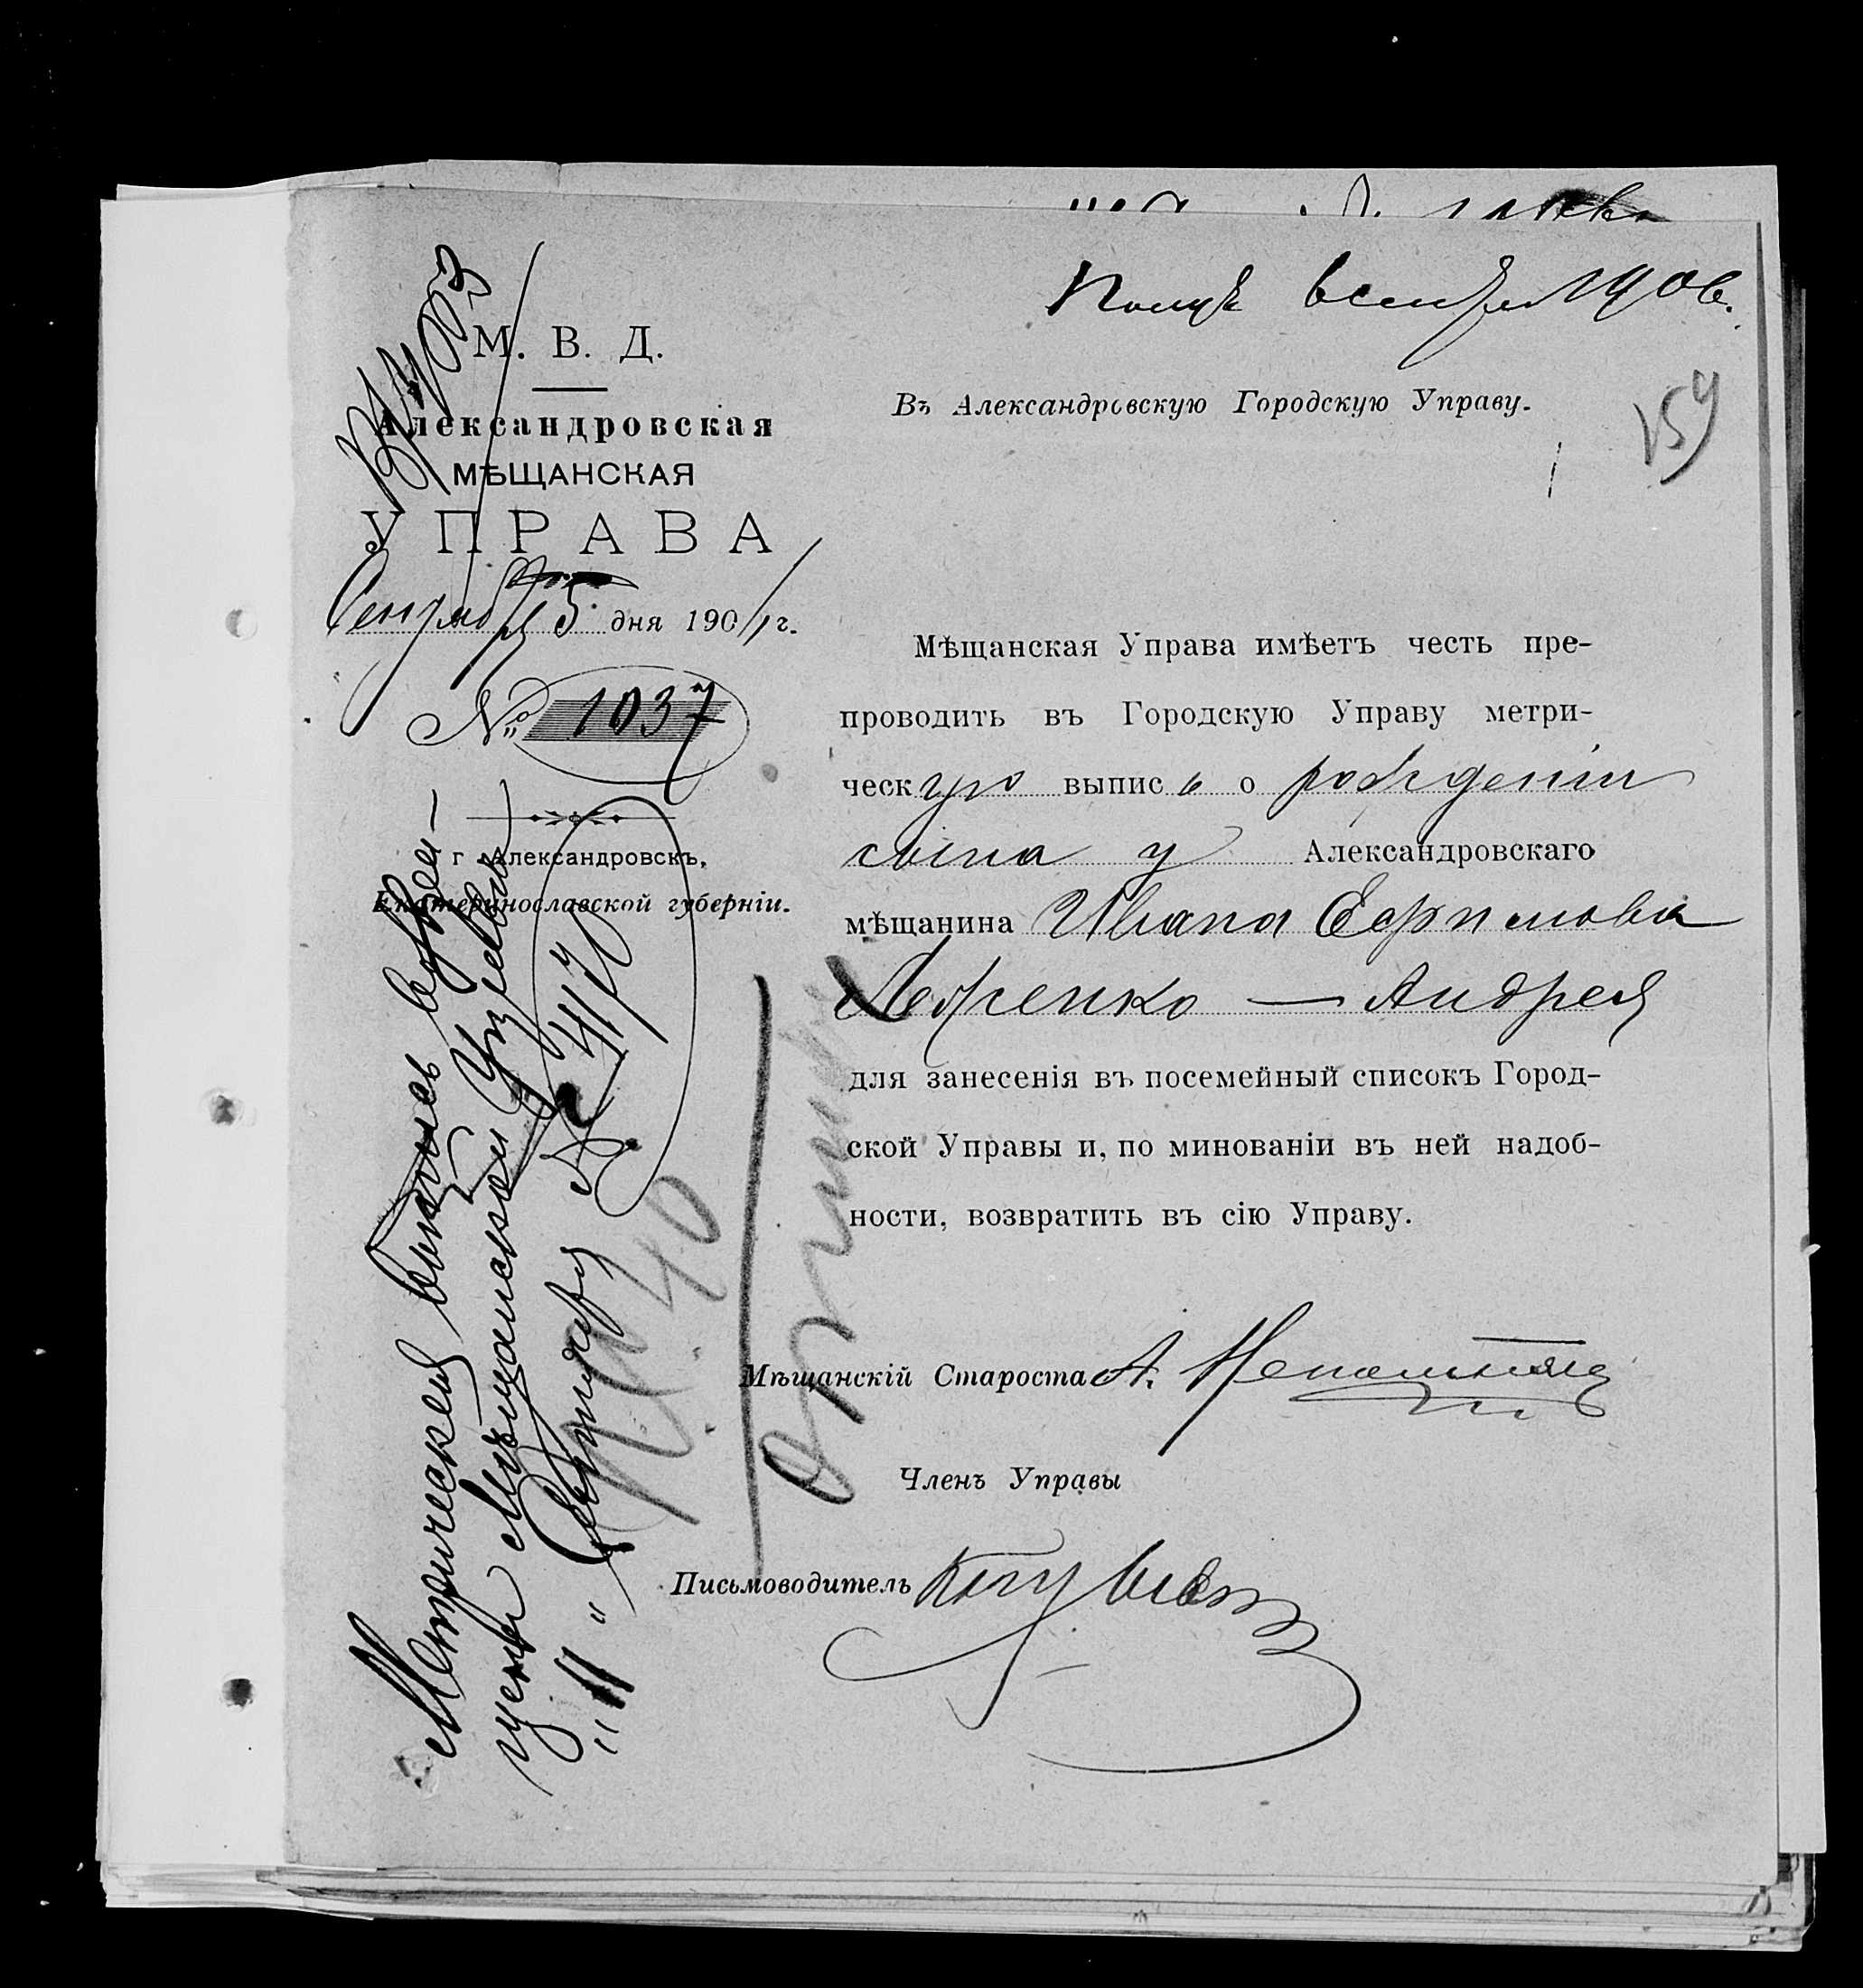 159
М. В. Д.
Александровская
МѢЩАНСКАЯ
УПРАВА
Сентября 5 дня 1901 г.
№ 1037
г. Александровскъ,
Екатеринославской губерніи.
Въ Александровскую Городскую Управу.
Мѣщанская Управа имѣетъ честь пре-
проводить въ Городскую Управу метри-
ческую выпись о рожденіи
сына у Александровскаго
мѣщанина Ивана Ефимова
— Андрея
для занесенія въ посемейный списокъ Город-
ской Управы и, по минованіи въ ней надоб-
ности, возвратить въ сію Управу.
Мѣщанскій Староста А.
Членъ Управы
Письмоводитель
Метрическая выпись возвра-
щена Мѣщанской Управѣ
"11" Сентября № 4117
№ 40